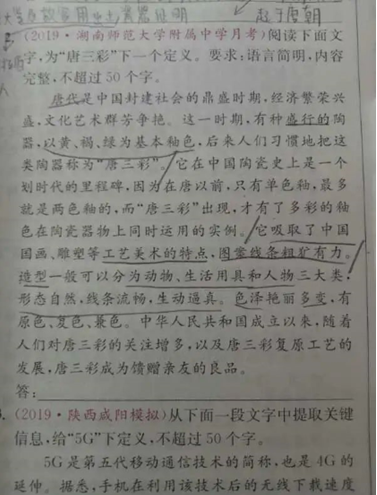 (2019·湖南师范大学附属中学月考)阅读下面文
字,为“唐三彩”下一个定义。要求:语言简明,内容
完整,不超过 50 个字。
唐代是中国封建社会的鼎盛时期,经济繁荣兴
盛,文化艺术群芳争艳。这一时期,有种盛行的陶
器,以黄、褐、绿为基本釉色,后来人们习惯地把这
类陶器称为“唐三彩”。它在中国陶瓷史上是一个
划时代的里程碑,因为在唐以前,只有单色釉,最多
就是两色釉的,而“唐三彩”出现,才有了多彩的釉
色在陶瓷器物上同时运用的实例。它吸取了中国
国画、雕塑等工艺美术的特点,图案线条粗犷有力。
造型一般可以分为动物、生活用具和人物三大类,
形态自然,线条流畅,生动逼真。色泽艳丽多变,有
原色、复色、兼色。中华人民共和国成立以来,随着
人们对唐三彩的关注增多,以及唐三彩复原工艺的
发展,唐三彩成为馈赠亲友的良品。
答:
(2019·陕西咸阳模拟)从下面一段文字中提取关键
信息,给“5G”下定义,不超过 50 个字。
5G 是第五代移动通信技术的简称,也是 4G 的
延伸。据悉,手机在利用该技术后的无线下载速度